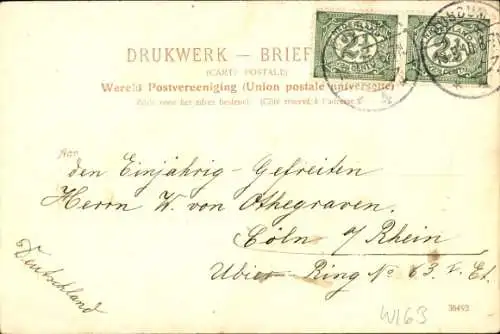 DRUKWERK — BRIEF
(CARTE POSTALE)
Wereld Postvereeniging (Union postale universelle)
Zijde voor het adres bestemd. (Côté réservé à l'adresse.)
2½ 2½
An
den Einjährig-Gefreiten
Herrn W. von Othegraven.
Cöln a/Rhein
Ubier-Ring No 63. I. Et.
Deutschland
W163
38493